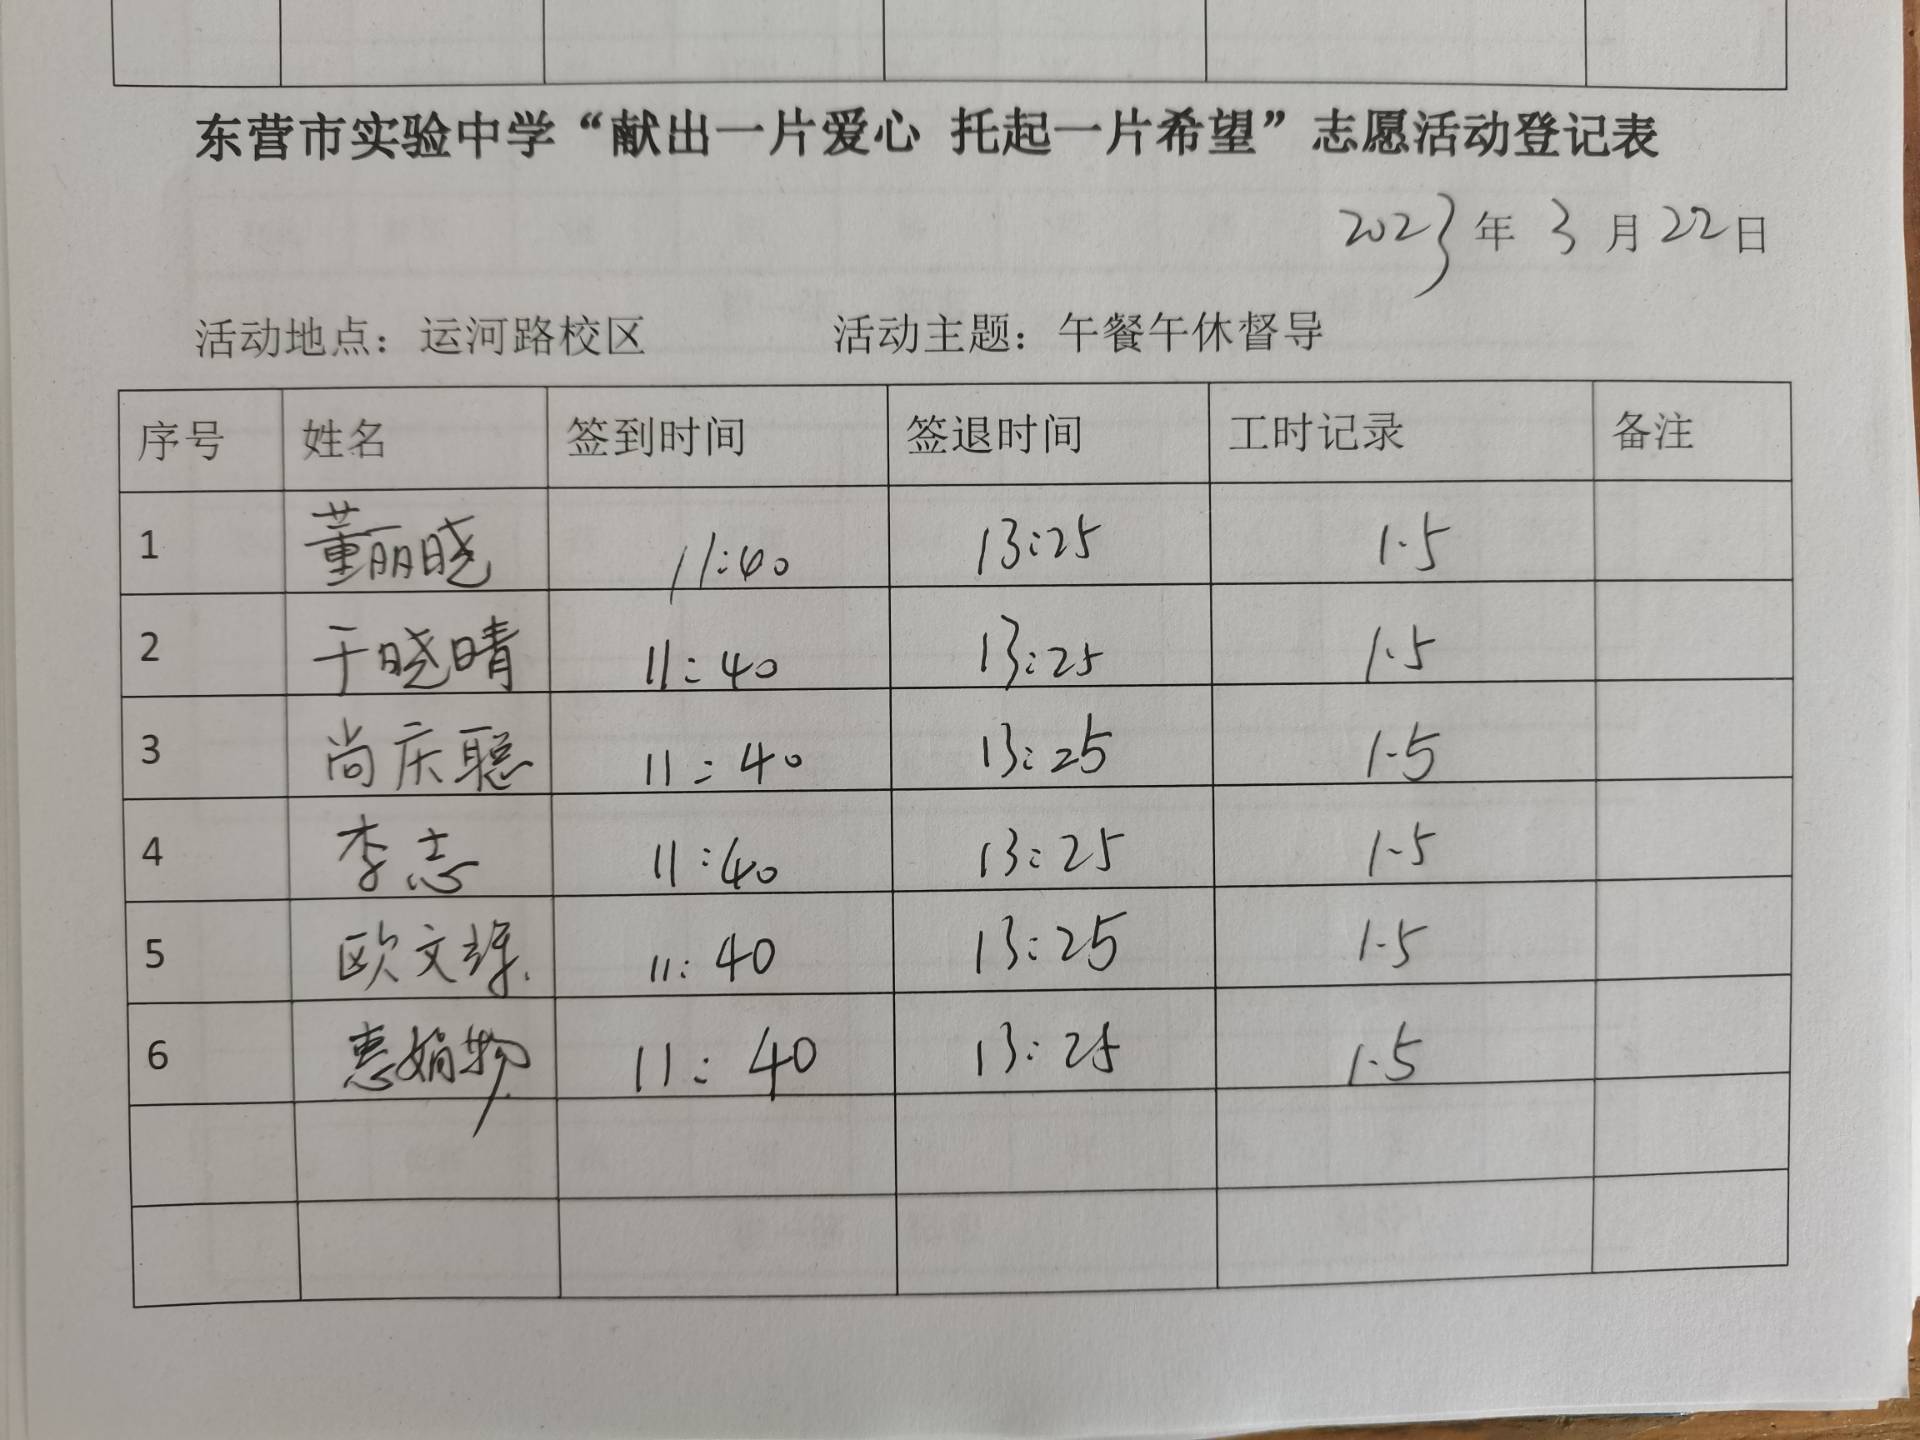 东营市实验中学“献出一片爱心 托起一片希望”志愿活动登记表
2023年 3 月 22日
活动地点：运河路校区 活动主题：午餐午休督导
序号 姓名 签到时间 签退时间 工时记录 备注
1 董丽晓 11:40 13:25 1.5
2 于晓晴 11:40 13:25 1.5
3 尚庆聪 11:40 13:25 1.5
4 李志 11:40 13:25 1.5
5 欧文 11:40 13:25 1.5
6 惠娟 11:40 13:25 1.5